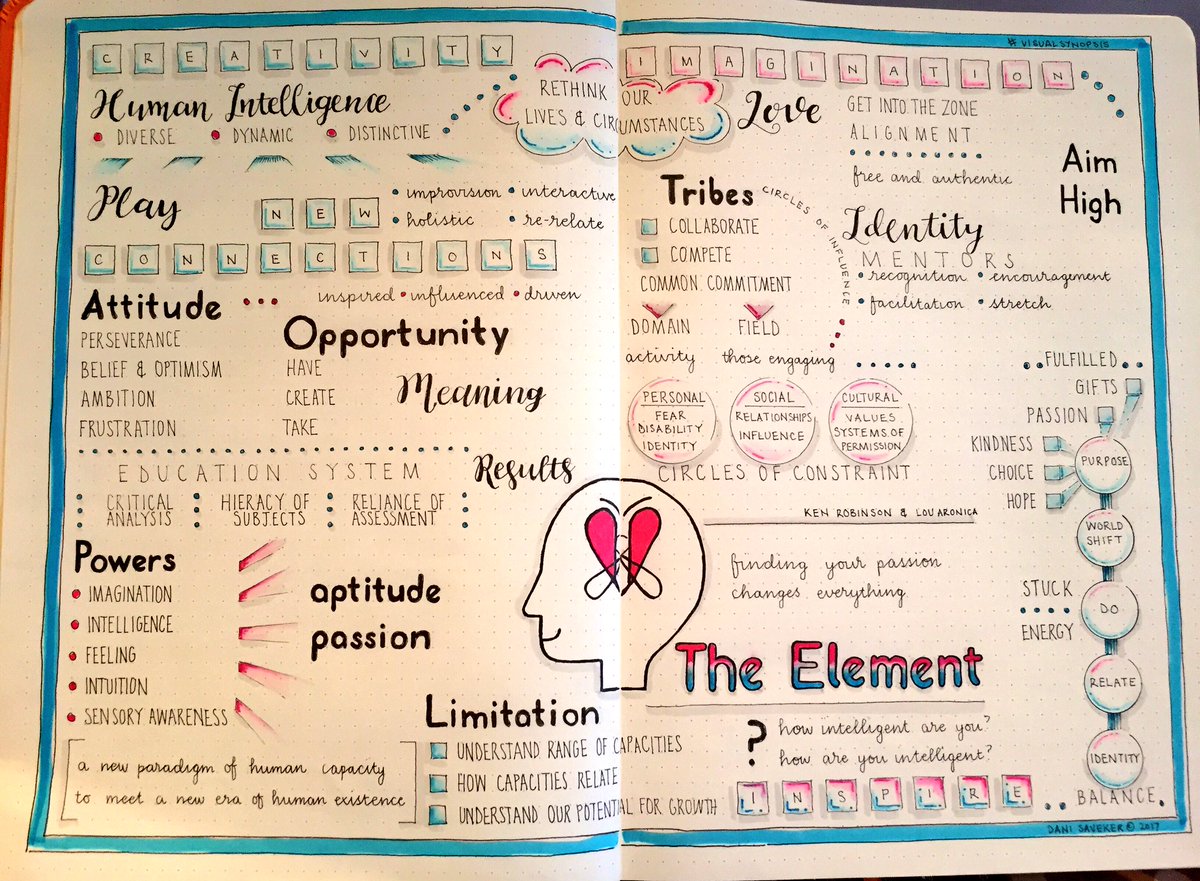 # VISUALSYNOPSIS
CREATIVITY
IMAGINATION
Human Intelligence
DIVERSE
DYNAMIC
DISTINCTIVE
RETHINK OUR
LIVES & CIRCUMSTANCES
Love
GET INTO THE ZONE
ALIGNMENT
free and authentic
Aim
High
Play
NEW
improvision
interactive
holistic
re-relate
CONNECTIONS
Tribes
CIRCLES OF INFLUENCE
COLLABORATE
COMPETE
COMMON COMMITMENT
DOMAIN
FIELD
activity
those engaging
Identity
MENTORS
recognition
encouragement
facilitation
stretch
Attitude
inspired
influenced
driven
PERSEVERANCE
BELIEF & OPTIMISM
AMBITION
FRUSTRATION
Opportunity
HAVE
CREATE
TAKE
Meaning
PERSONAL
FEAR
DISABILITY
IDENTITY
SOCIAL
RELATIONSHIPS
INFLUENCE
CULTURAL
VALUES
SYSTEMS OF
PERMISSION
CIRCLES OF CONSTRAINT
FULFILLED
GIFTS
PASSION
KINDNESS
CHOICE
HOPE
PURPOSE
WORLD
SHIFT
STUCK
ENERGY
DO
RELATE
IDENTITY
BALANCE
EDUCATION SYSTEM
CRITICAL
ANALYSIS
HIERACY OF
SUBJECTS
RELIANCE OF
ASSESSMENT
Results
KEN ROBINSON & LOU ARONICA
finding your passion
changes everything
The Element
Powers
IMAGINATION
INTELLIGENCE
FEELING
INTUITION
SENSORY AWARENESS
aptitude
passion
a new paradigm of human capacity
to meet a new era of human existence
Limitation
UNDERSTAND RANGE OF CAPACITIES
HOW CAPACITIES RELATE
UNDERSTAND OUR POTENTIAL FOR GROWTH
?
how intelligent are you?
how are you intelligent?
I.N.S.P.I.R.E
DANI SAVEKER © 2017